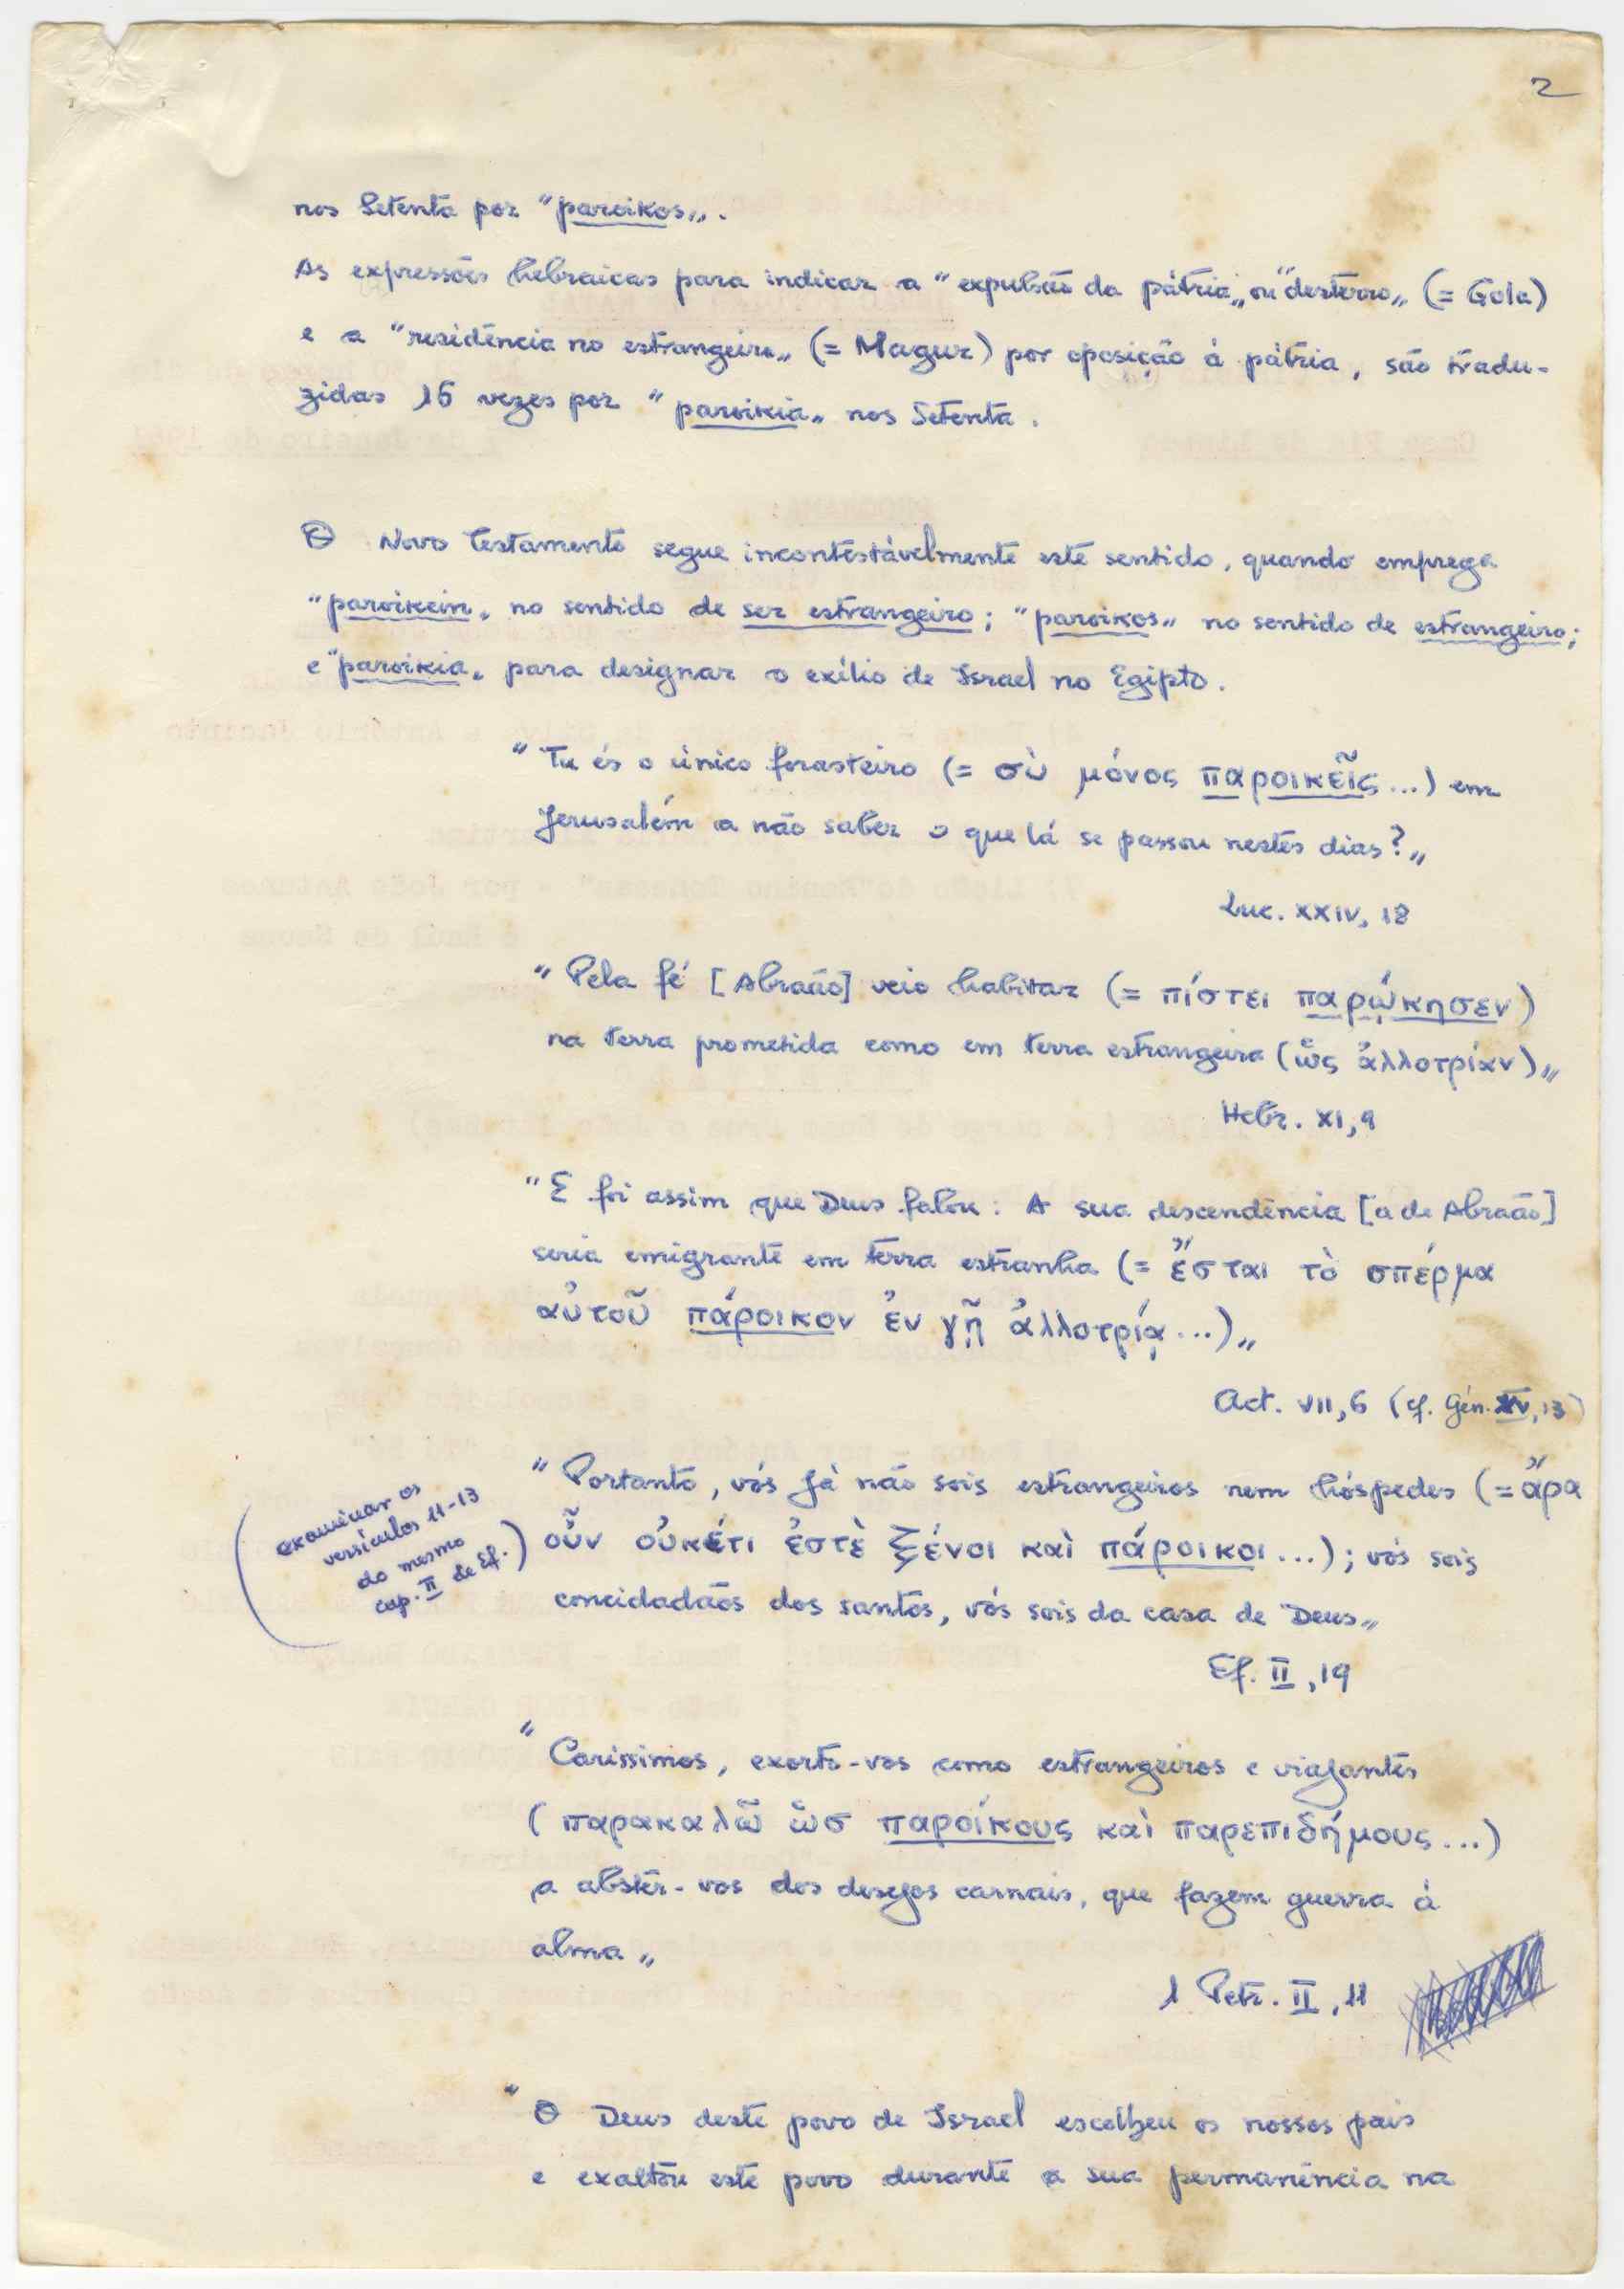 2
nos Setenta por "paroikos".
As expressões hebraicas para indicar a "expulsão da pátria" ou "desterro" (= Gola)
e a "residência no estrangeiro" (= Magur) por oposição à pátria, são tradu-
zidas 16 vezes por "paroikia" nos Setenta.
O Novo Testamento segue incontestàvelmente este sentido, quando emprega
"paroikein" no sentido de ser estrangeiro; "paroikos" no sentido de estrangeiro;
e "paroikia" para designar o exílio de Israel no Egipto.
"Tu és o único forasteiro (= σὺ μόνος παροικεῖς...) em
Jerusalém a não saber o que lá se passou nestes dias?"
Luc. XXIV, 18
"Pela fé [Abraão] veio habitar (= πίστει παρῴκησεν)
na terra prometida como em terra estrangeira (ὡς ἀλλοτρίαν)"
Hebr. XI, 9
"E foi assim que Deus falou: A sua descendência [a de Abraão]
seria emigrante em terra estranha (= ἔσται τὸ σπέρμα
αὐτοῦ πάροικον ἐν γῇ ἀλλοτρίᾳ...)"
Act. VII, 6 (cf. Gén. XV, 13)
"Portanto, vós já não sois estrangeiros nem hóspedes (= ἄρα
οὖν οὐκέτι ἐστὲ ξένοι καὶ πάροικοι...); vós sois
concidadãos dos santos, vós sois da casa de Deus"
(examinar os
versículos 11-13
do mesmo
cap. II de Ef.)
Ef. II, 19
"Caríssimos, exorto-vos como estrangeiros e viajantes
(παρακαλῶ ὡσ παροίκους καὶ παρεπιδήμους...)
a abster-vos dos desejos carnais, que fazem guerra à
alma"
1 Petr. II, 11
"O Deus deste povo de Israel escolheu os nossos pais
e exaltou este povo durante a sua permanência na